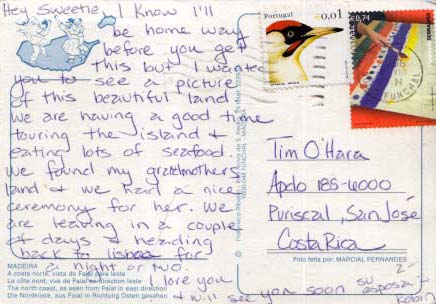 Hey Sweetie, I know I'll
be home way
before you get
this but I wanted
you to see a picture
of this beautiful land.
We are having a good time
touring the island &
eating lots of seafood.
We found my grandmothers
land & we had a nice
ceremony for her. We
are leaving in a couple
of days & heading
back to Lisboa for
a night or two.
I love you
& will see you soon su esposa -
Robin
Portugal
€0,01
€0,74
FUNCHAL
Tim O'Hara
Apdo 185-6000
Puriscal, San José
Costa Rica
Foto feita por: MARCIAL FERNANDES
MADEIRA
A costa norte, vista do Faial para leste
La côte nord, vue de Faial en direction leste
The north coast, as seen from Faial in east direction
Die Nordküste, aus Faial in Richtung Osten gesehen